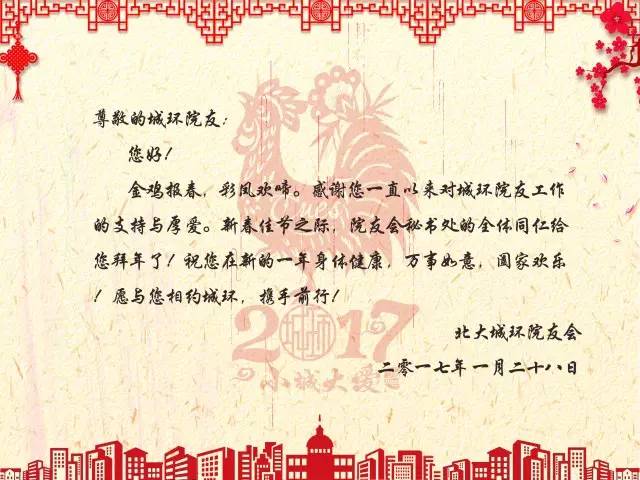 尊敬的城环院友：
您好！
金鸡报春，彩凤欢啼。感谢您一直以来对城环院友工作
的支持与厚爱。新春佳节之际，院友会秘书处的全体同仁给
您拜年了！祝您在新的一年身体健康，万事如意，阖家欢乐
！愿与您相约城环，携手前行！
北大城环院友会
2017
二零一七年一月二十八日
小城大爱